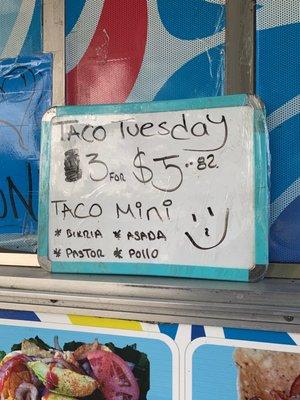 TACO TuesdAy
3 FOR $5.82
TACO MiNi
* BIKRIA * ASADA
* PASTOR * POLLO